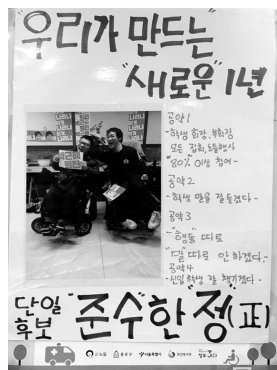 "우리가 만드는"
"새로운" 1년
공약1
-학생회장, 부회장
모든 집회, 노들행사
"80%" 이상 참여-
공약2
-학생 말을 잘 듣겠다-
공약3
-"행동" 따로
"말" 따로 안 하겠다-
공약4
-신입학생 잘 챙기겠다-
단일
후보
"준수"한 "정"(正)
종로구
서울특별시